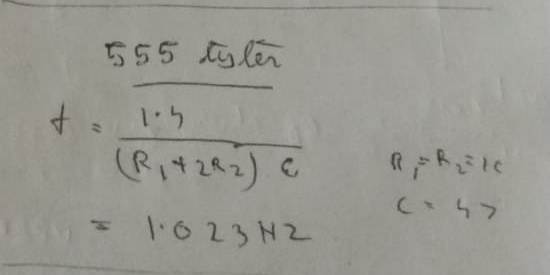 555
f = 1.4 / (R₁+2R₂) C
R₁=R₂=1k
C = 47
= 1.023 HZ